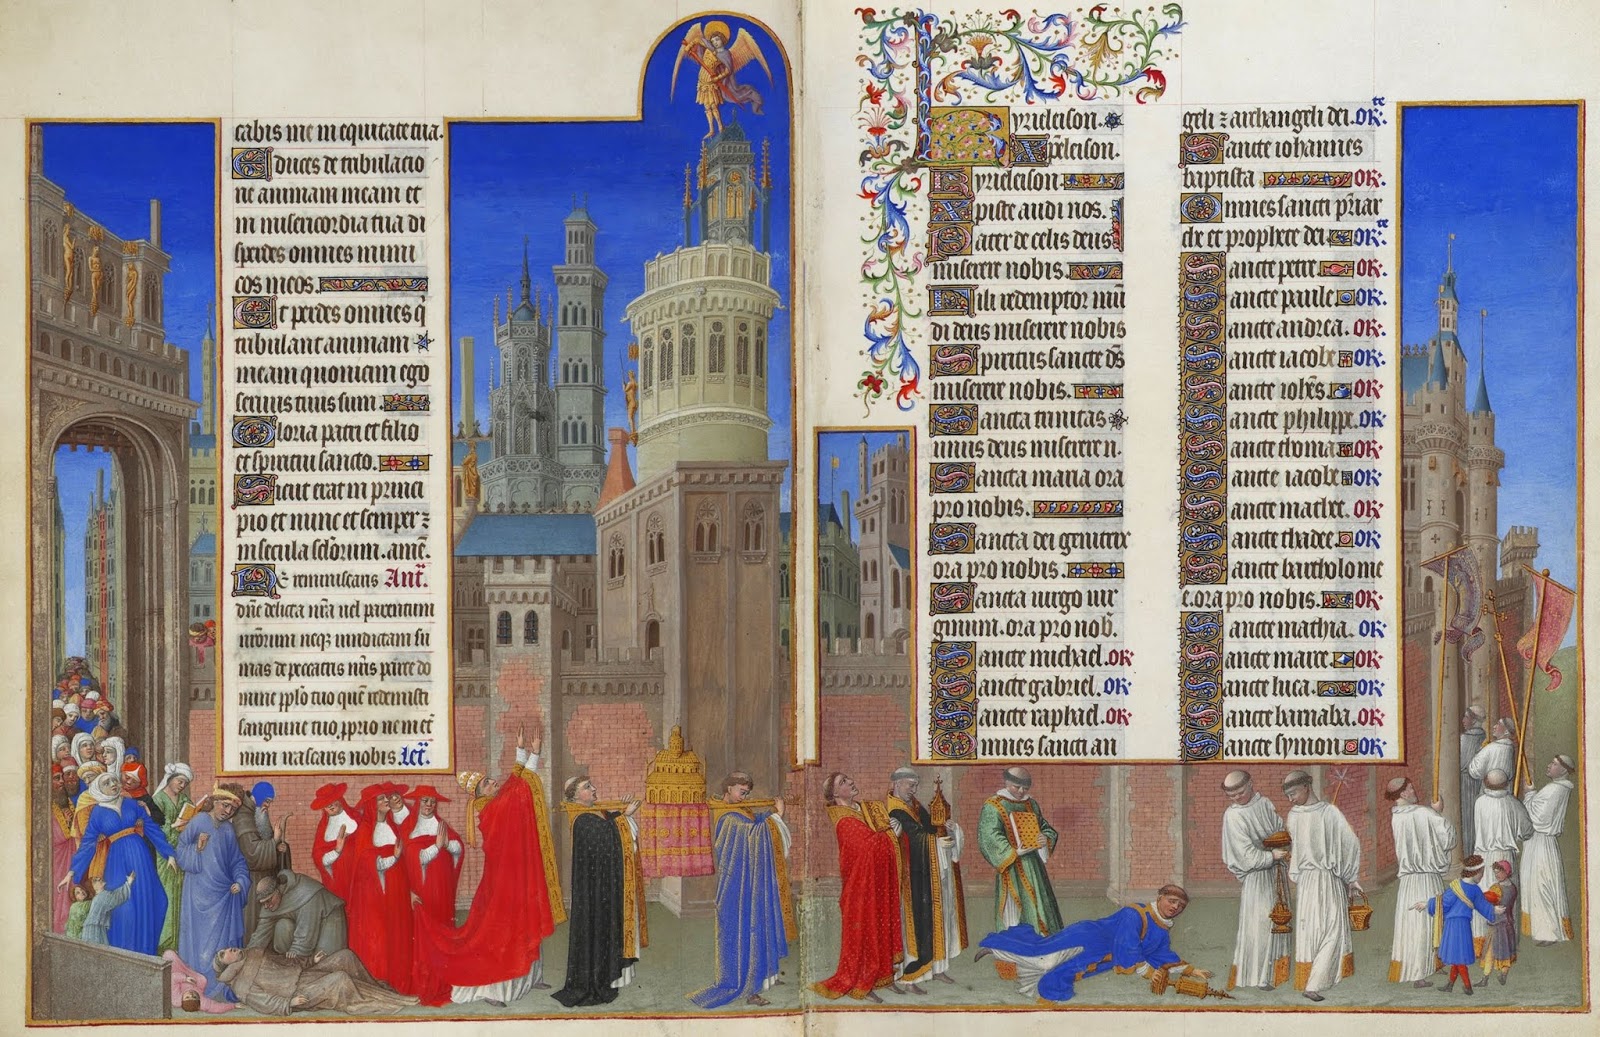 cabis me in equitate tua.
Educes de tribulacio
ne animam meam et
in misericordia tua di
sperdes omnes inimi
cos meos.
Et perdes omnes q̄
tribulant animam
meam quoniam ego
seruus tuus sum.
Gloria patri et filio
et spiritui sancto.
Sicut erat in princi
pio et nunc et semper ⁊
in secula sclōrum. amē.
Ne reminiscaris Ant̄.
dn̄e delicta nr̄a uel parentum
nr̄orum neqꝫ uindictam su
mas de peccatis nr̄is parce do
mine pplō tuo quē redemisti
sanguine tuo ꝓprio ne in et̄
num irascaris nobis. Let̄.
Kyrieleison.
Xp̄eleison.
Kyrieleison.
Xpiste audi nos.
Pater de celis deus
miserere nobis.
Fili redemptor mū
di deus miserere nobis
Spiritus sancte ds̄
miserere nobis.
Sancta trinitas
unus deus miserere n.
Sancta maria ora
pro nobis.
Sancta dei genitrix
ora pro nobis.
Sancta uirgo uir
ginum. ora pro nob̄.
Sancte michael. or.
Sancte gabriel. or.
Sancte raphael. or.
Omnes sancti an
geli ⁊ archangeli dei. orte.
Sancte iohannes
baptista or.
Omnes sancti p̄riar
che et prophete dei orte.
Sancte petre or.
Sancte paule or.
Sancte andrea. or.
Sancte iacobe or.
Sancte ioh̄es or.
Sancte philippe. or.
Sancte thoma or.
Sancte iacobe or.
Sancte mathee. or.
Sancte thadee. or.
Sancte bartholome
e. ora pro nobis. or.
Sancte mathia. or.
Sancte marce or.
Sancte luca. or.
Sancte barnaba. or.
Sancte symon or.